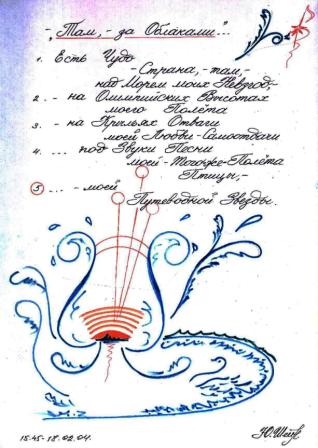 -„Там,-за Облаками"...
1. Есть Чудо
-Страна,-там,-
над Морем моих Невзгод,-
2. - на Олимпийских Высотах
моего Полёта
3. - на Крыльях Отваги
моей Любви-Самоотдачи
4. ... под Звуки Песни
моей-Тогоже-Полёта
Птицы,-
5 ... - моей
Путеводной Звезды.
15.45-18.02.04.